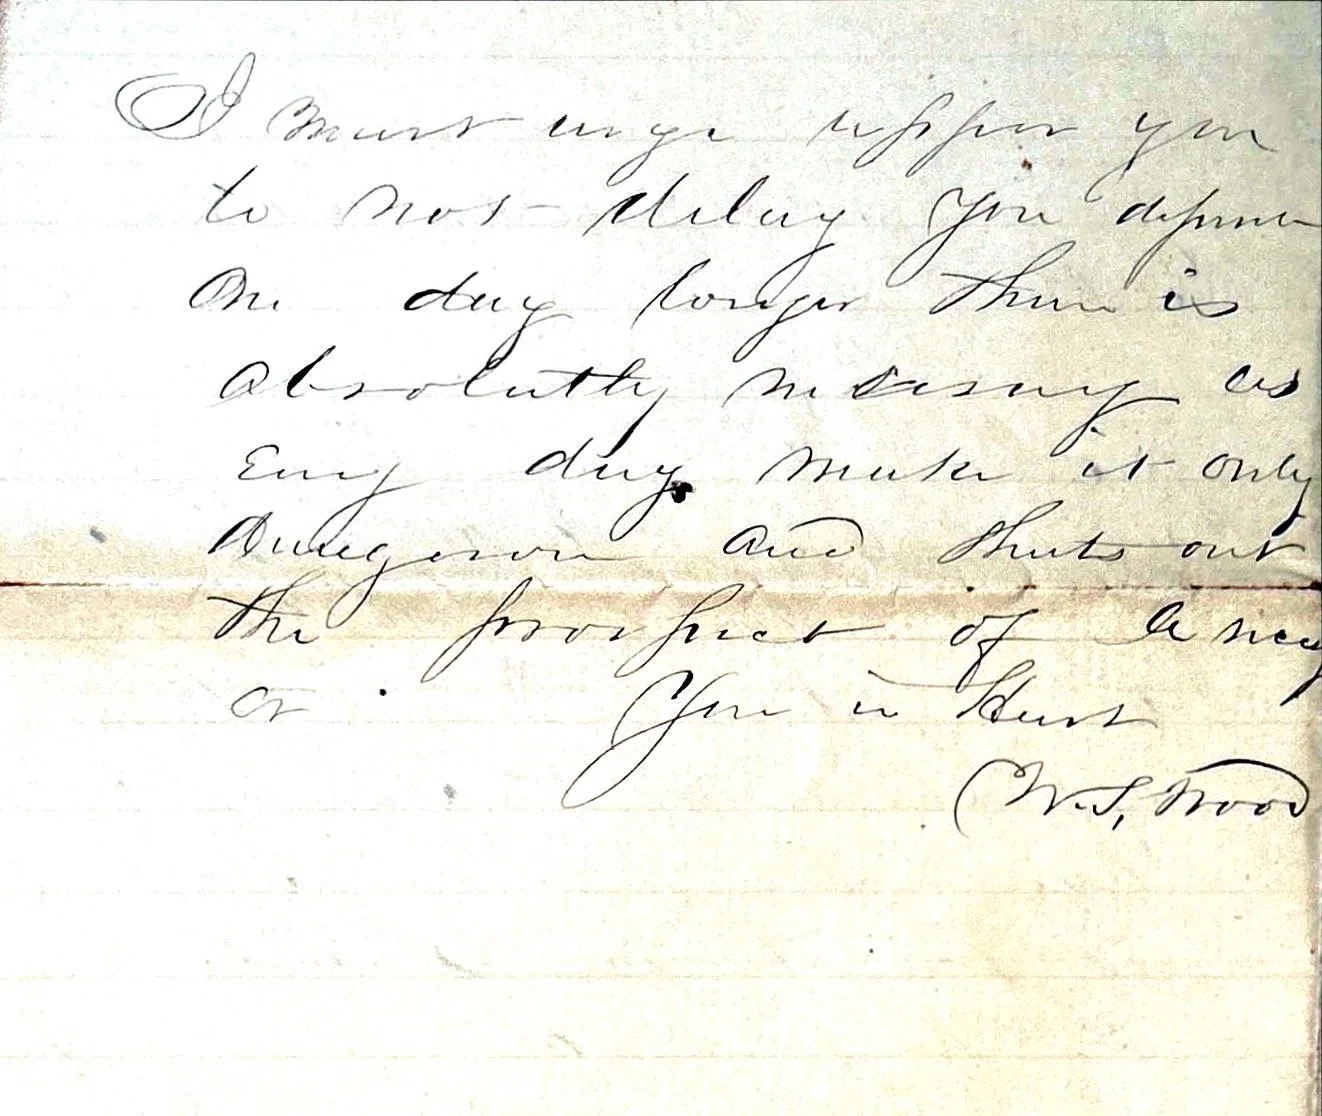 I must urge uppon you
to not delay your
One day longer then is
absolutely necessary as
Every day make it only
dangerous and shuts out
the prospect of a
or . Your in Hast
W. S. Wood